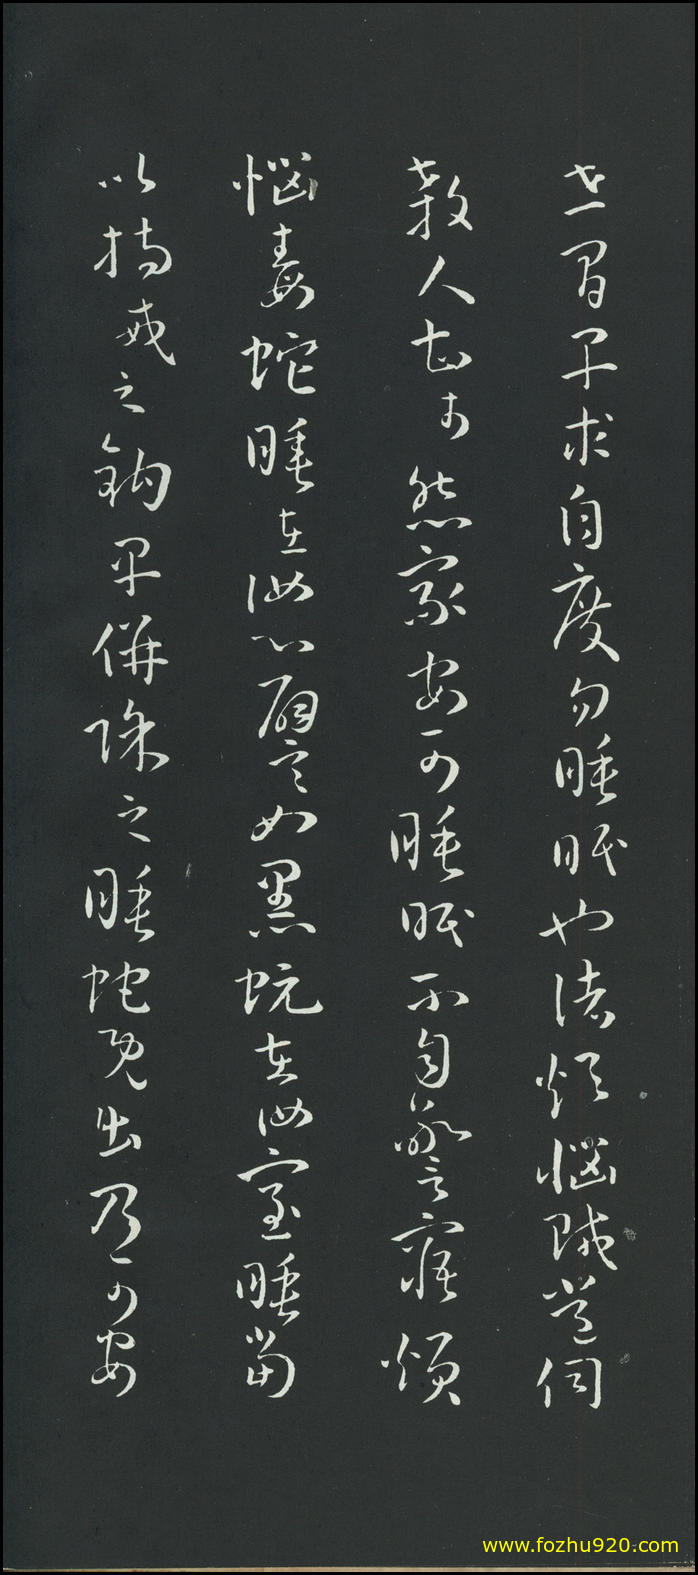 世間早求自度勿睡眠也諸煩惱賊常伺
殺人甚於怨家安可睡眠不自警寤煩
惱毒蛇睡在汝心譬如黑蚖在汝室睡當
以持戒之鉤早併除之睡蛇既出乃可安
www.fozhu920.com